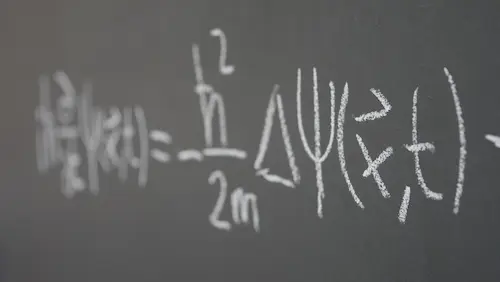 iħ ∂/∂t Ψ(x⃗,t) = - ħ²/2m Δ Ψ(x⃗,t) -